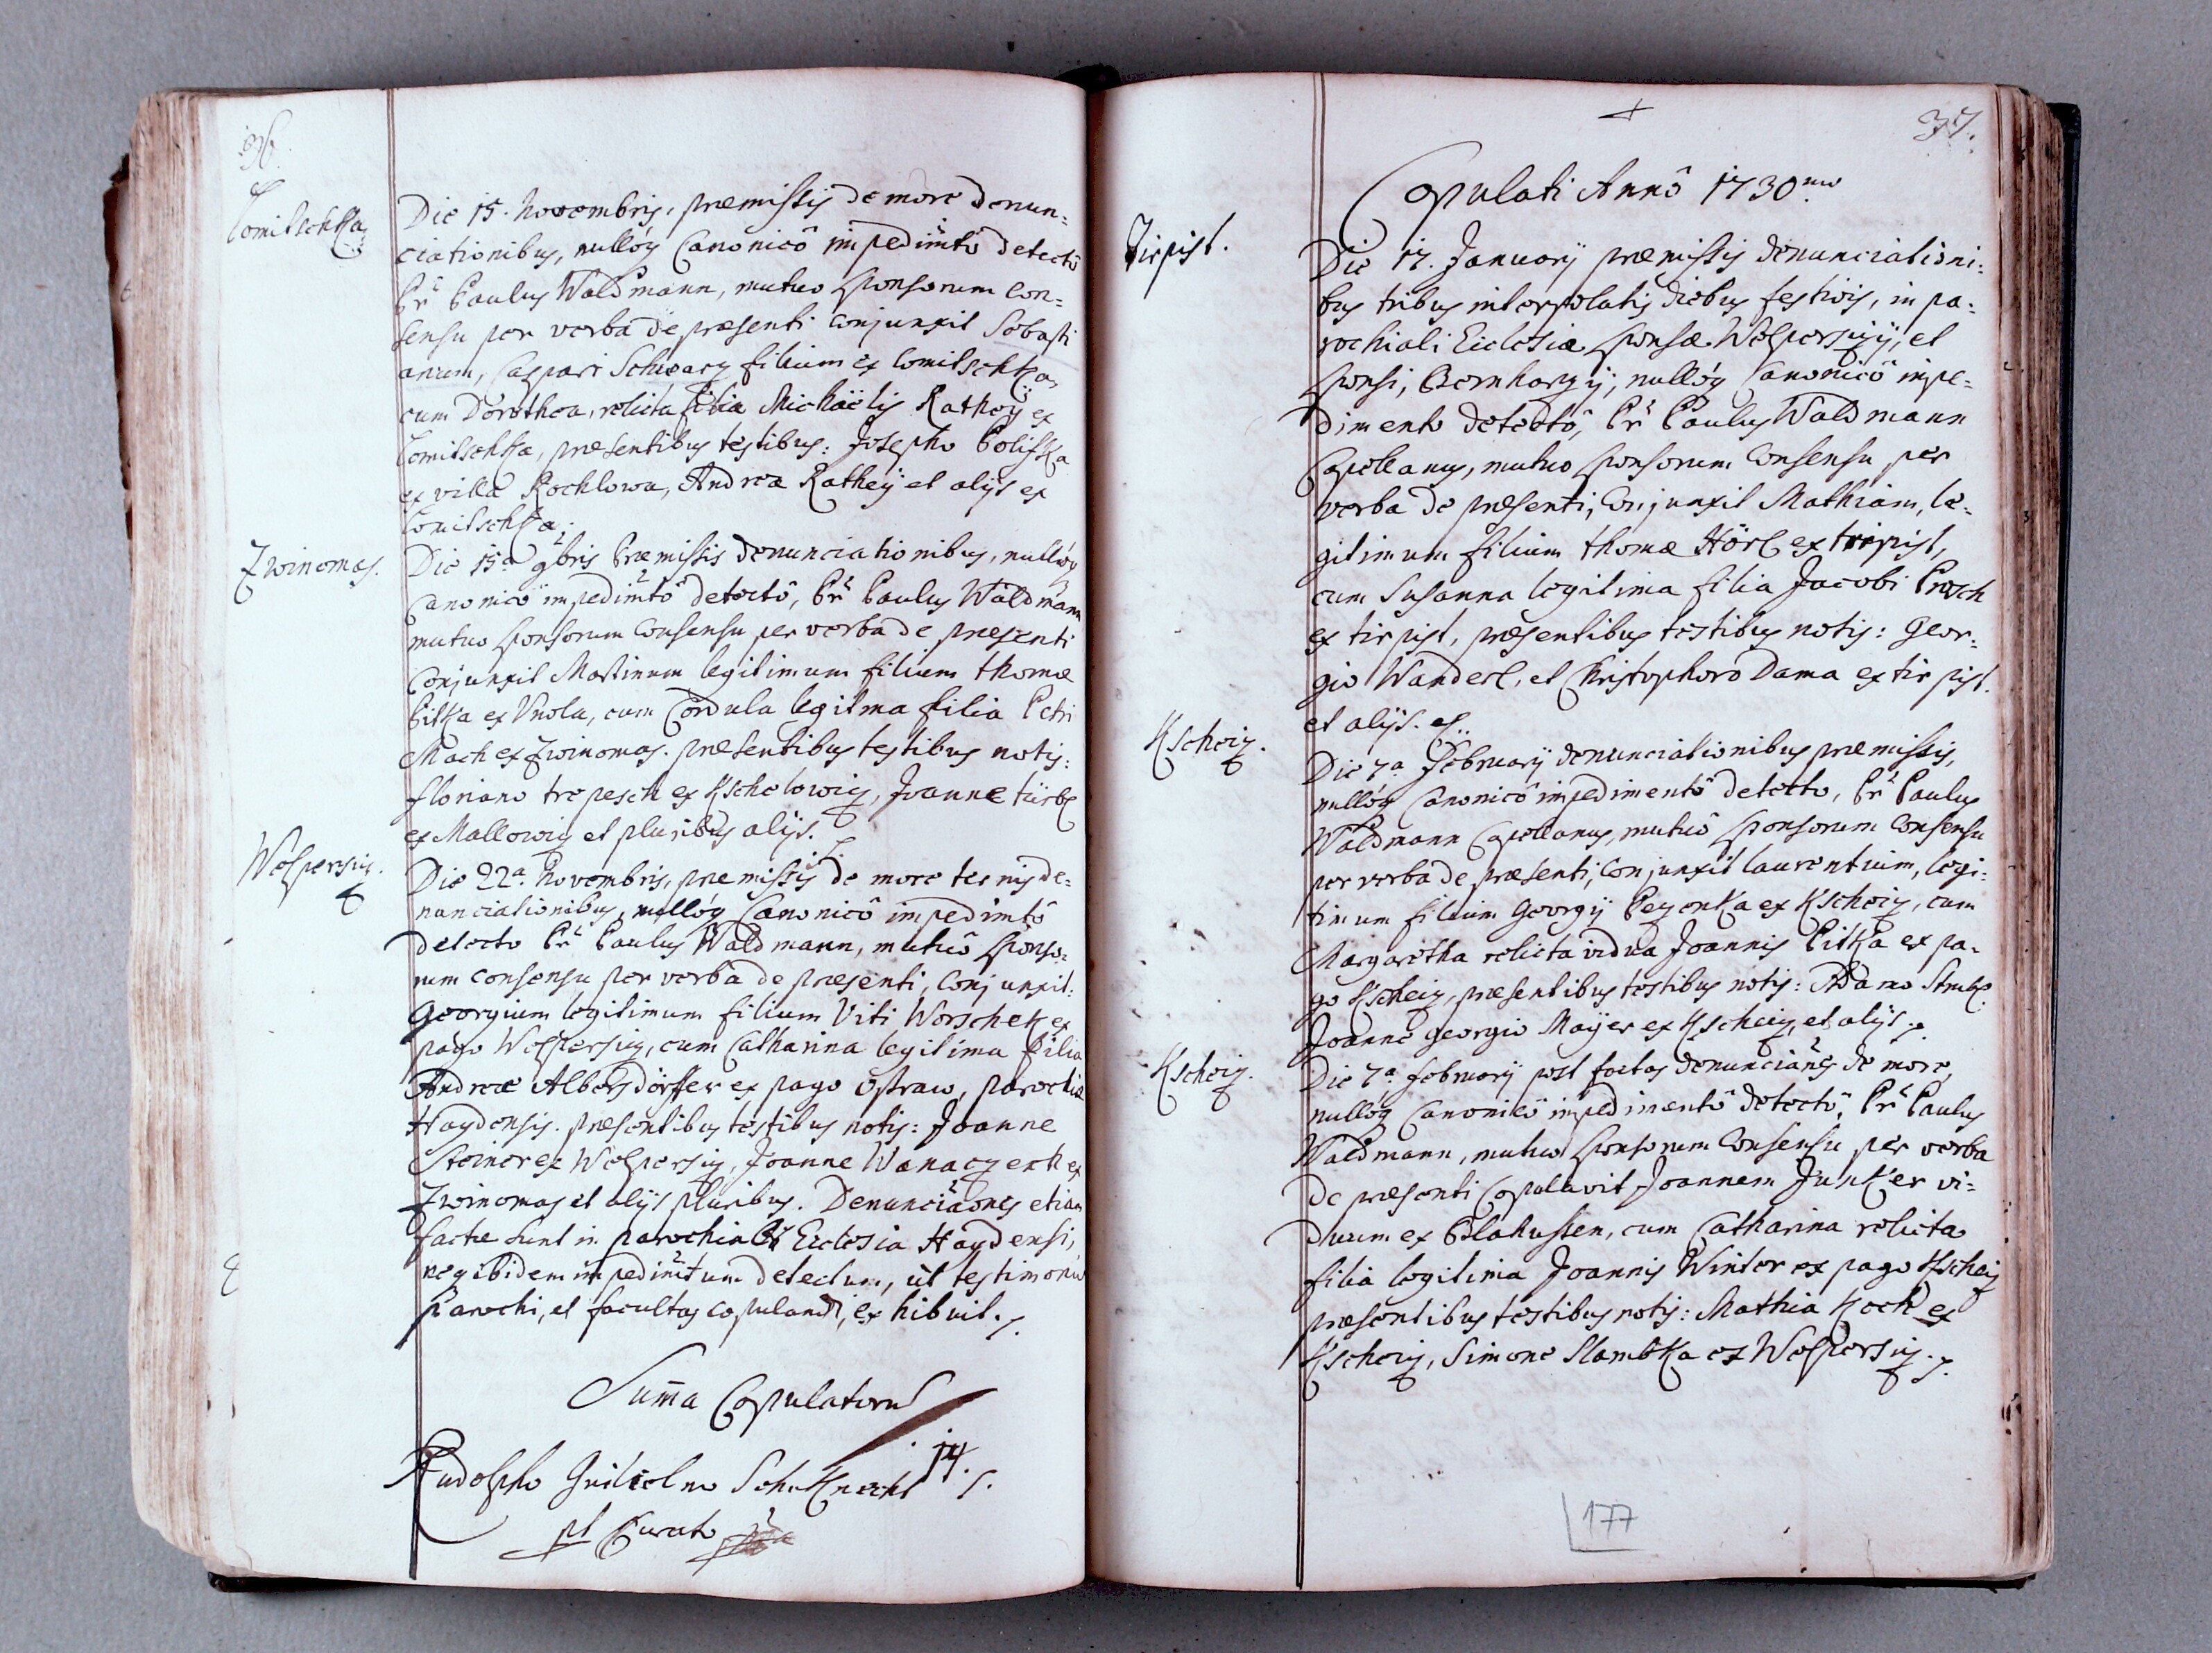 36.
Lomitschka
Die 15. Novembris, præmissis de more denun=
ciationibus, nullóq Canonicô impedimtô detectô
Pr Paulus Waldmann, mutuo sponsorum con=
sensu per verba de præsenti conjunxit Sebasti
anum, Caspari Schwarz filium ex Lomitschka,
cum Dorothea, relicta filia Michaëlis Rathey ex
Lomitschka, præsentibus testibus: Josepho Polifka
ex villa Rochlowa, Andrea Rathey et alijs ex
Lomitschka.
Zwinomas.
Die 15ª 9bris Præmissis denunciationibus, nullóq
Canonicô impedimtô detectô, Pr Paulus Waldmann
mutuo sponsorum consensu per verba de præsenti
Conjunxit Martinum legitimum filium Thomæ
Pitka ex Unola, cum Cordula legitma filia Petri
Mach ex Zwinomas. præsentibus testibus notis:
Floriano Trepesch ex Kscholowiz, Joanne Türbl
ex Mallowiz et pluribus alijs.
Wolpersiz.
Die 22ª. Novembris, præmissis de more ternis de=
nunciationibus, nullóq Canonicô impedimtô
detecto Pr Paulus Waldmann, mutuô sponso=
rum consensu per verba de præsenti, conjunxit:
Georgium legitimum filium Viti Worschek ex
pago Wolpersiz, cum Catharina legitima filia
Andreæ Albersdörffer ex pago Ostraw, parochiæ
Haydensis. præsentibus testibus notis: Joanne
Steiner ex Wolpersiz, Joanne Wanaczek ex
Zwinomas et alijs pluribus. Denunciaones etiam
factæ sunt in parochiali Ecclesia Haydensi,
neq ibidem impedimtum detectum, ut testimoniu
Parochi, et facultas copulandi, exhibuit.
Suma Copulatoru
14.
Rudolpho Guilielmo Schuknecht
pt Curato
37.
Copulati Annô 1730mo
Tirpist.
Die 17. Januarij præmissis denunciationi=
bus tribus interpolatis diebus festivis, in pa=
rochiali Ecclesia sponsæ Wolpersizij, et
sponsi, Bernharzij, nullóq Canonicô impe=
dimento detectô, Pr Paulus Waldmann
Capellanus, mutuo sponsorum Consensu per
verba de præsenti, Conjunxit Mathiam, le=
gitimum filium Thomæ Hörl ex Tirpist,
cum Susanna legitima filia Jacobi Prosch
ex Tirpist, præsentibus testibus notis: Geor=
gio Wanderl, et Christophoro Dama ex Tirpist.
et alijs.
Kscheiz.
Die 7ª Februarij denunciationibus præmissis,
nullóq Canonicô impedimentô detecto, Pr Paulus
Waldmann Capellanus, mutuô sponsorum Consensu
per verba de præsenti, conjunxit Laurentium, legi=
timum filium Georgij Pezenka ex Kscheiz, cum
Margaretha relicta vidua Joannis Pitka ex pa=
go Kscheiz, præsentibus testibus notis: Adamo Strubl.
Joanne Georgio Mayer ex Kscheiz, et alijs.
Kscheiz.
Die 7ª. Februarij post factas denunciaones de more,
nullóq Canonicô impedimentô detectô, Pr Paulus
Waldmann, mutuo sponsorum Consensu per verba
de præsenti Copulavit Joannem Junker vi=
duum ex Blahussen, cum Catharina relicta
filia legitima Joannis Winter ex pago Kscheiz
præsentibus testibus notis: Mathia Koch ex
Kscheiz, Simone Slambka ex Wolpersiz.
177